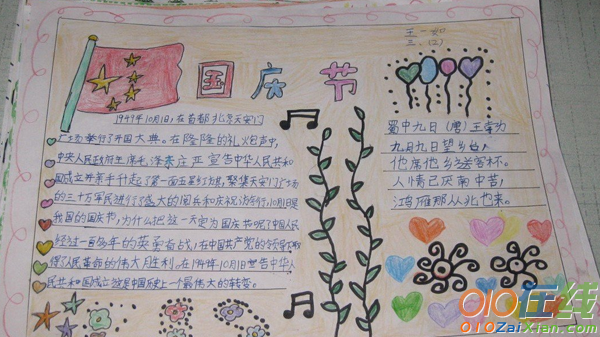 王一如
三.(2)
国庆节
1949年10月1日,在首都北京天安门
广场举行了开国大典。在隆隆的礼炮声中,
中央人民政府主席毛泽东庄严宣告中华人民共和
国成立并亲手升起了第一面五星红旗,聚集天安门广场
的三十万军民进行了盛大的阅兵和庆祝游行,10月1日是
我国的国庆节,为什么把这一天定为国庆节呢?中国人民
经过一百多年的英勇奋战,在中国共产党的领导下取
得了人民革命的伟大胜利。在1949年10月1日宣告中华人
民共和国成立,这是中国历史上一个最伟大的转变。
蜀中九日(唐)王 为
九月九日望乡台,
他席他乡送客杯。
人情已厌南中苦,
鸿雁那从北地来。
010在线
010ZaiXian.com